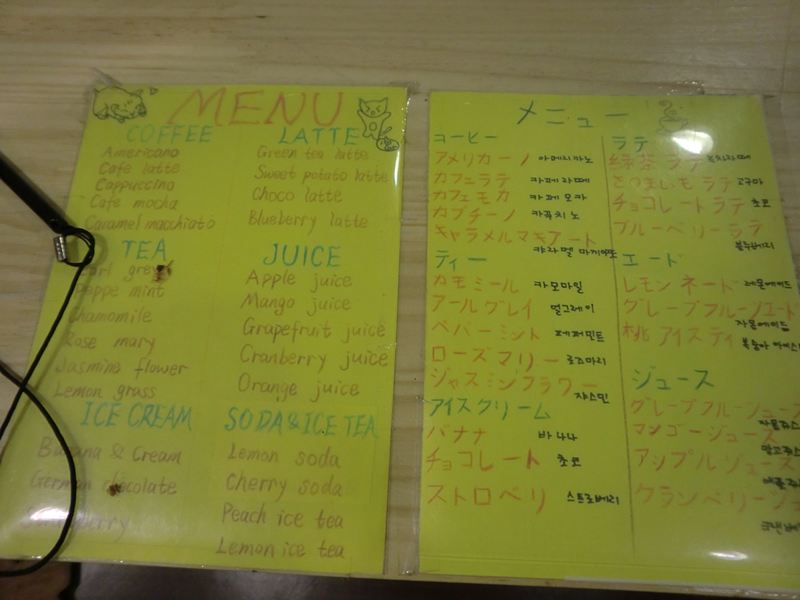 MENU
COFFEE
Americano
Cafe latte
Cappuccino
Cafe mocha
Caramel macchiato
LATTE
Green tea latte
Sweet potato latte
Choco latte
Blueberry latte
TEA
Earl grey
Peppe mint
Chamomile
Rose mary
Jasmine flower
Lemon grass
JUICE
Apple juice
Mango juice
Grapefruit juice
Cranberry juice
Orange juice
ICE CREAM
Banana & Cream
German chocolate
SODA & ICE TEA
Lemon soda
Cherry soda
Peach ice tea
Lemon ice tea
メニュー
コーヒー
アメリカーノ 아메리카노
カフェラテ 카페라떼
カフェモカ 카페모카
カプチーノ 카푸치노
キャラメルマキアート
캬라멜 마끼아또
ティー
カモミール 카모마일
アールグレイ 얼그레이
ペパーミント 페퍼민트
ローズマリー 로즈마리
ジャスミンフラワー
쟈스민
アイスクリーム
バナナ 바나나
チョコレート 초코
ストロベリ 스트로베리
ラテ
緑茶ラテ 녹차라떼
さつまいもラテ 고구마
チョコレートラテ 초코
ブルーベリーラテ
블루베리
エード
レモンネード 레몬에이드
グレープフルーツエード
자몽에이드
桃アイスティ
복숭아
ジュース
グレープフルーツジュース
자몽쥬스
マンゴージュース
망고쥬스
アップルジュース
クランベリージュ